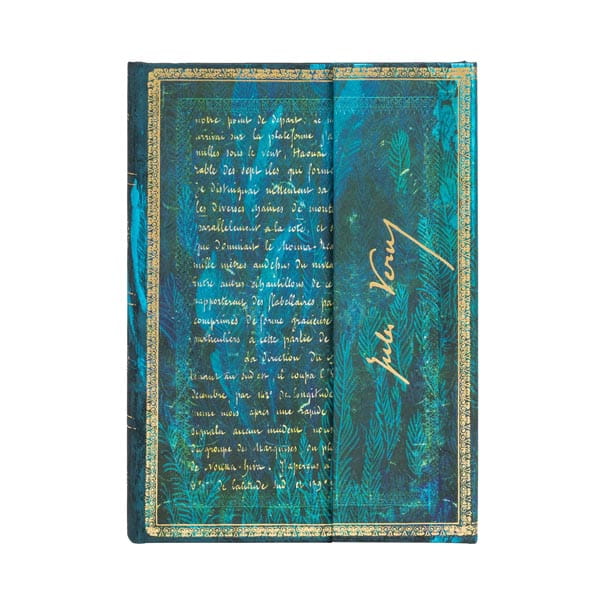 notre point de départ. Le
arrivai sur la plateforme j'a
milles sous le vent, Haouaï
rable des sept îles qui forme
Je distinguai nettement sa
les diverses chaînes de mont
parallèlement à la côte, et s
que dominait le Mouna-Rea
mille mètres audessus du nivea
entre autres échantillons de ce
rapportèrent des flabellaires pa
comprimés de forme gracieuse
particuliers à cette partie de
La direction du
au sud est. il coupa l'
décembre par 142° de longitude
même mois après une rapide
signala aucun incident nous
du groupe des Marquises
de Nouka-hiva. J'aperçus à
de latitude sud et 139°
Jules Verne